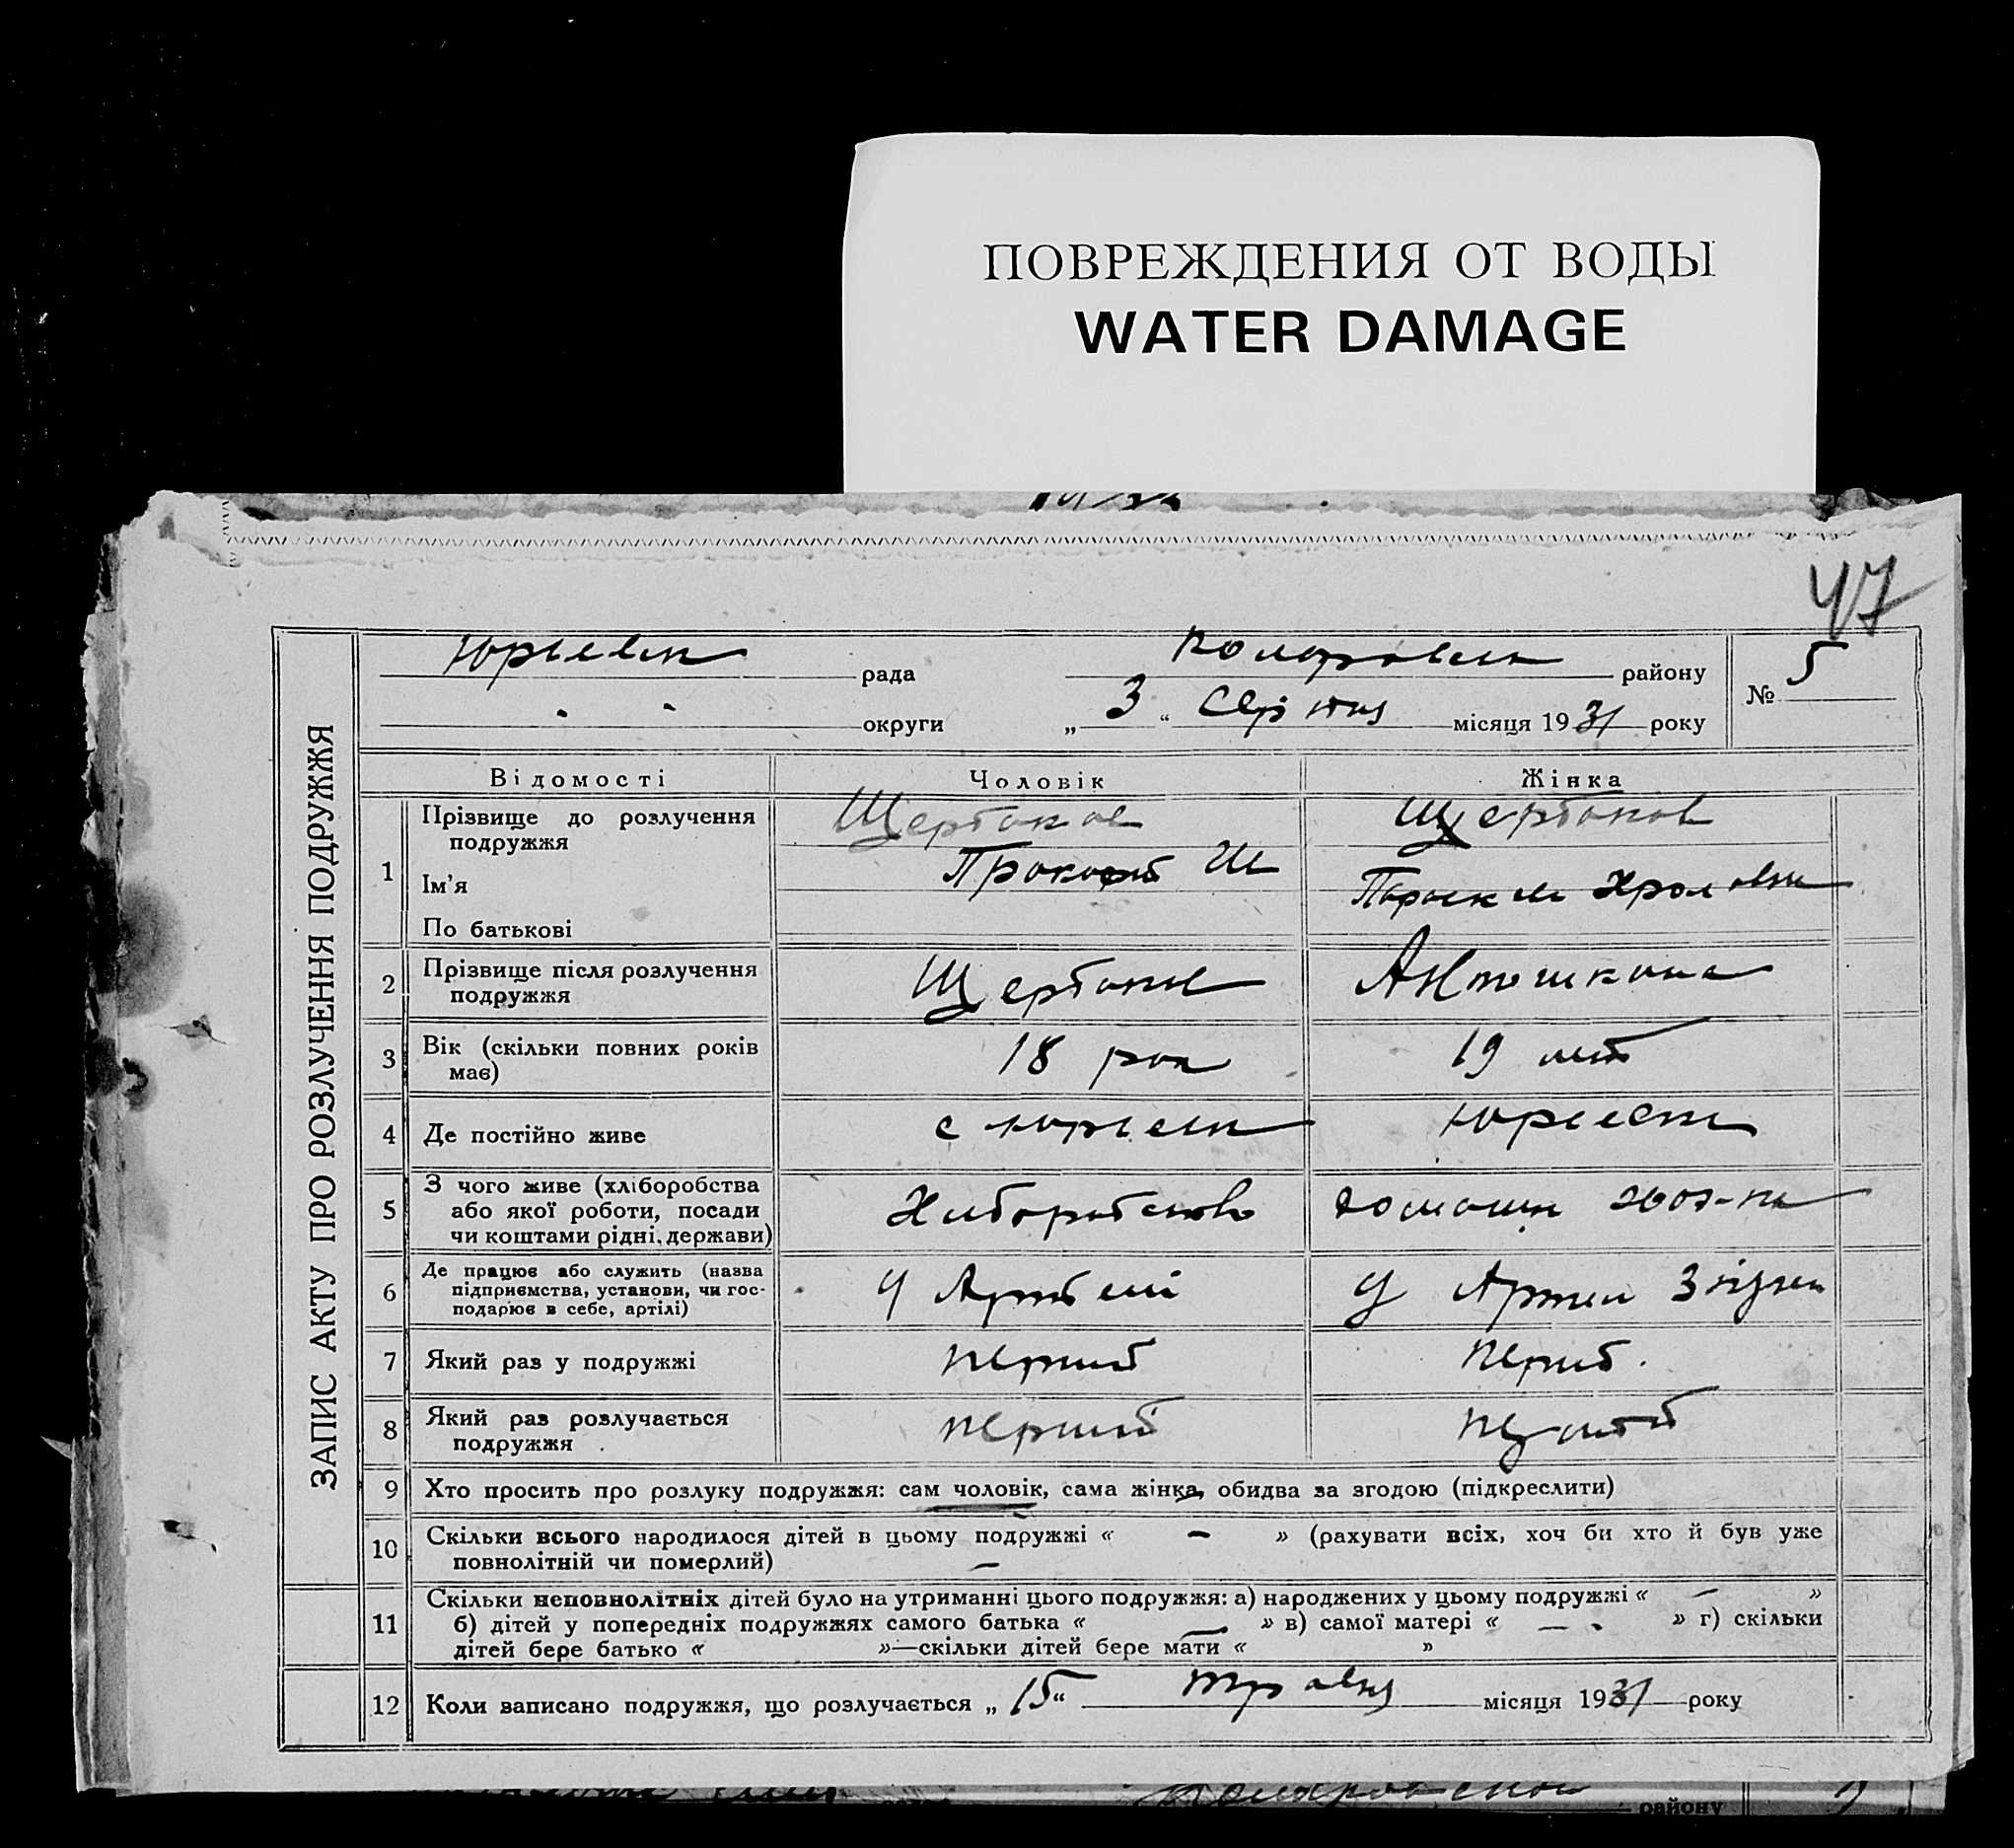 ПОВРЕЖДЕНИЯ ОТ ВОДЫ
WATER DAMAGE
47
ЗАПИС АКТУ ПРО РОЗЛУЧЕННЯ ПОДРУЖЖЯ
рада району № 5
округи „ 3 “ Серпня місяця 1931 року
Відомості Чоловік Жінка
1 Прізвище до розлучення Щербаков Щербаков
подружжя
Ім'я
По батькові
2 Прізвище після розлучення
подружжя
3 Вік (скільки повних років 18 рок 19 лет
має)
4 Де постійно живе с
5 З чого живе (хліборобства
або якої роботи, посади
чи коштами рідні, держави)
6 Де працює або служить (назва У Артелі У Артел
підприємства, установи, чи гос-
подарює в себе, артілі)
7 Який раз у подружжі перший
8 Який раз розлучається перший
подружжя
9 Хто просить про розлуку подружжя: сам чоловік, сама жінка, обидва за згодою (підкреслити)
10 Скільки всього народилося дітей в цьому подружжі « – » (рахувати всіх, хоч би хто й був уже
повнолітній чи померлий) –
11 Скільки неповнолітніх дітей було на утриманні цього подружжя: а) народжених у цьому подружжі « – »
б) дітей у попередніх подружжях самого батька « — » в) самої матері « — » г) скільки
дітей бере батько « »—скільки дітей бере мати « »
12 Коли записано подружжя, що розлучається „ 15 “ травня місяця 1931 року
району